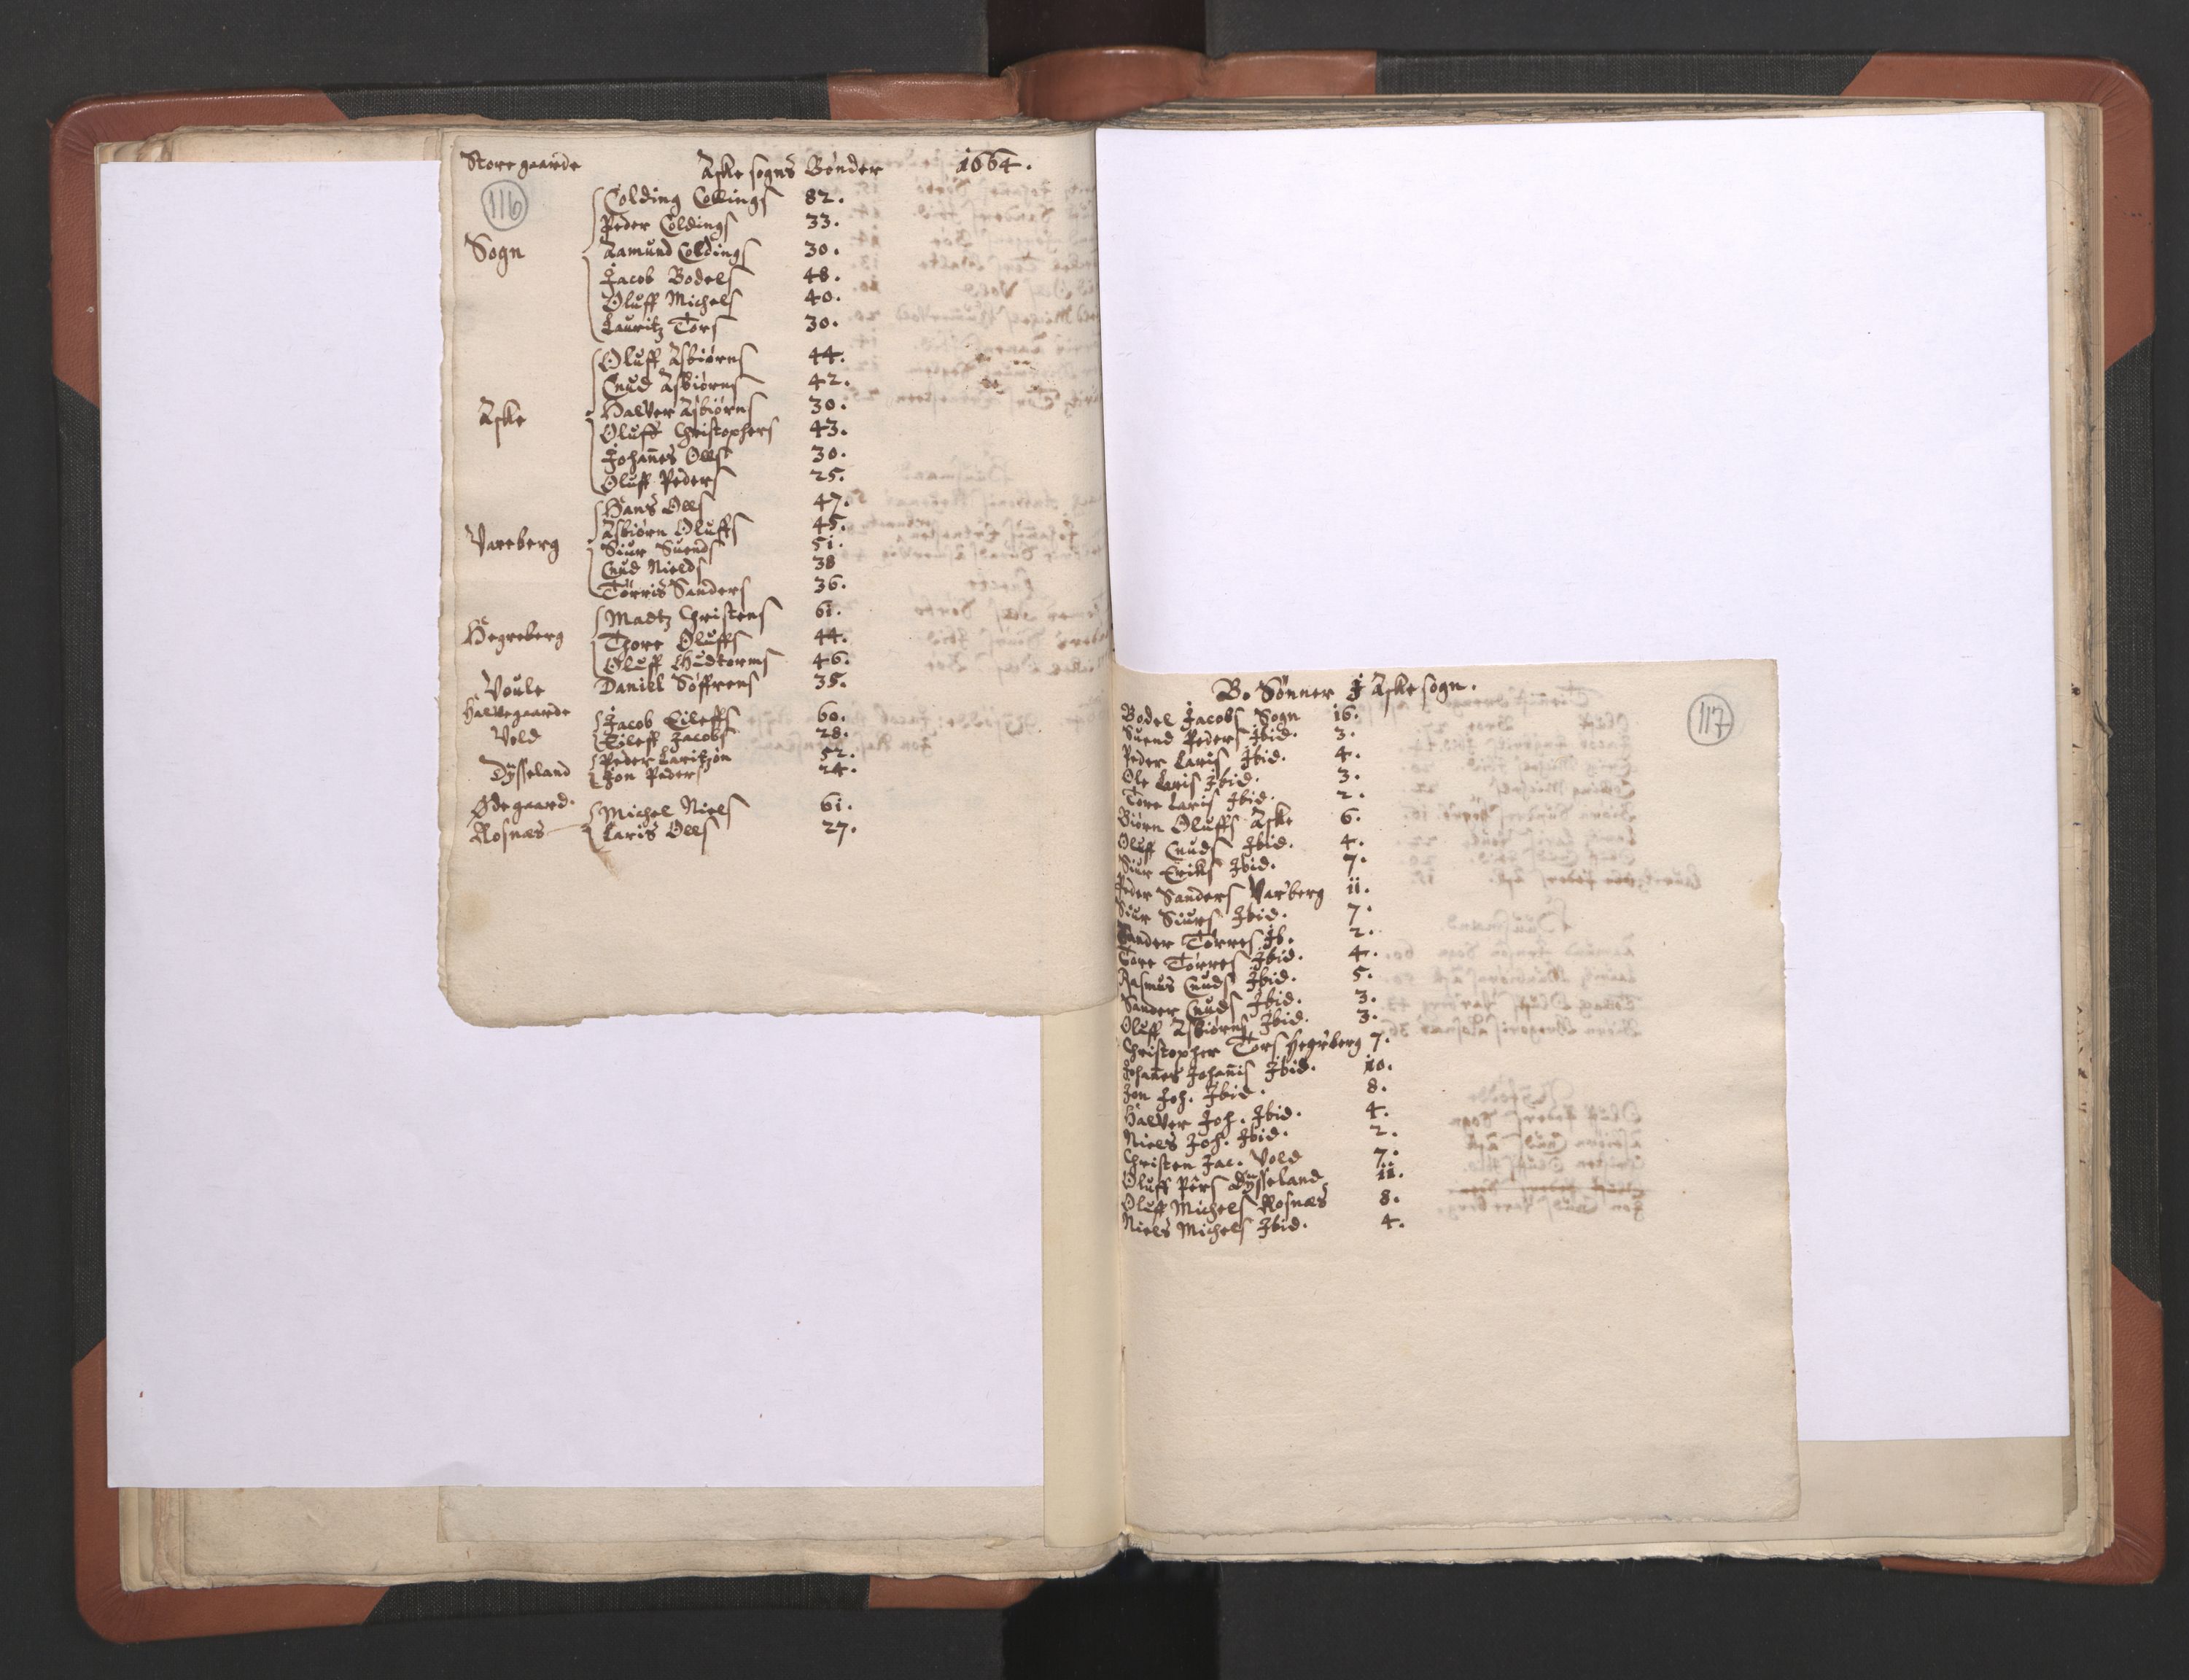 Store gaarde Aske sogns Bønder 1664.
116
Colding Collings 82.
Peder Coldings 33.
Sogn Aamund Coldings 30.
Jacob Bodels 48.
Oluff Michels 40.
Lauritz Tors 30.
Oluff Asbiørns 44.
Cnud Asbiørns 42.
Aske Halvor Asbiørns 30.
Oluff Christophers 43.
Johanes Olls 30.
Oluff Peders 25.
Hans Olls 47.
Asbiørn Oluffs 45.
Vareberg Siur Suends 51.
Cnud Nields 38
Tørris Sanders 36.
Madtz Christens 61.
Hegreberg Thore Oluffs 44.
Oluff Gudtorms 46.
Voule Daniel Søffrens 35.
Halvegaarde
Jacob Eileffs 60.
Vold Eileff Jacobs 28.
Peder Laritzøn 52.
Dysseland Jon Peders 24.
Ødegaard.
Michel Niels 61.
Rosnæs Laris Olls 27.
Bo Sønner J Aske sogn.
117
Bodel Jacobs Sogn 16.
Suend Peders Jbid. 3.
Peder Laris Jbid. 4.
Ole Laris Jbid. 3.
Tore Laris Jbid. 2.
Biørn Oluffs Aske 6.
Oluff Cnuds Jbid. 4.
Siur Eriks Jbid. 7.
Peder Sanders Varberg 11.
Siur Siurs Jbid. 7.
Sander Tørres Jb. 2.
Tore Tørres Jbid. 4.
Rasmus Cnuds Jbid. 5.
Sander Cnuds Jbid. 3.
Oluff Asbiørns Jbid. 3.
Christopher Tors Hegrberg 7.
Johanes Johanis Jbid. 10.
Jon Joh. Jbid. 8.
Halvor Joh. Jbid. 4.
Niels Joh. Jbid. 2.
Christen Jac. Vold 7.
Oluff Pers Dysseland 11.
Oluff Michels Rosnæs 8.
Niels Michels Jbid. 4.